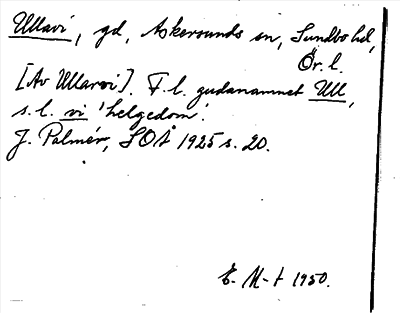 Ullavi, gd, Askersunds sn, Sundbo hd,
Ör. l.
[Av Ullarvi]. F. l. gudanamnet Ull,
s. l. vi 'helgedom'.
J. Palmér, SOÅ 1925 s. 20.
E. M-t 1950.